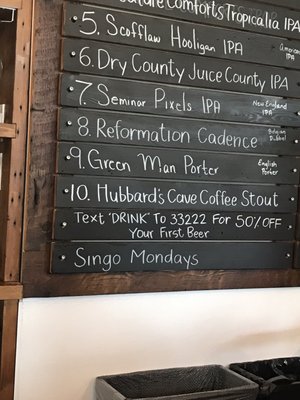 ature Comforts Tropicalia IPA
5. Scofflaw Hooligan IPA American IPA
6. Dry County Juice County IPA
7 Seminar Pixels IPA New England IPA
8. Reformation Cadence Belgian Dubbel
9. Green Man Porter English Porter
10. Hubbard's Cave Coffee Stout
Text 'DRINK' To 33222 For 50% OFF
Your First Beer
Singo Mondays